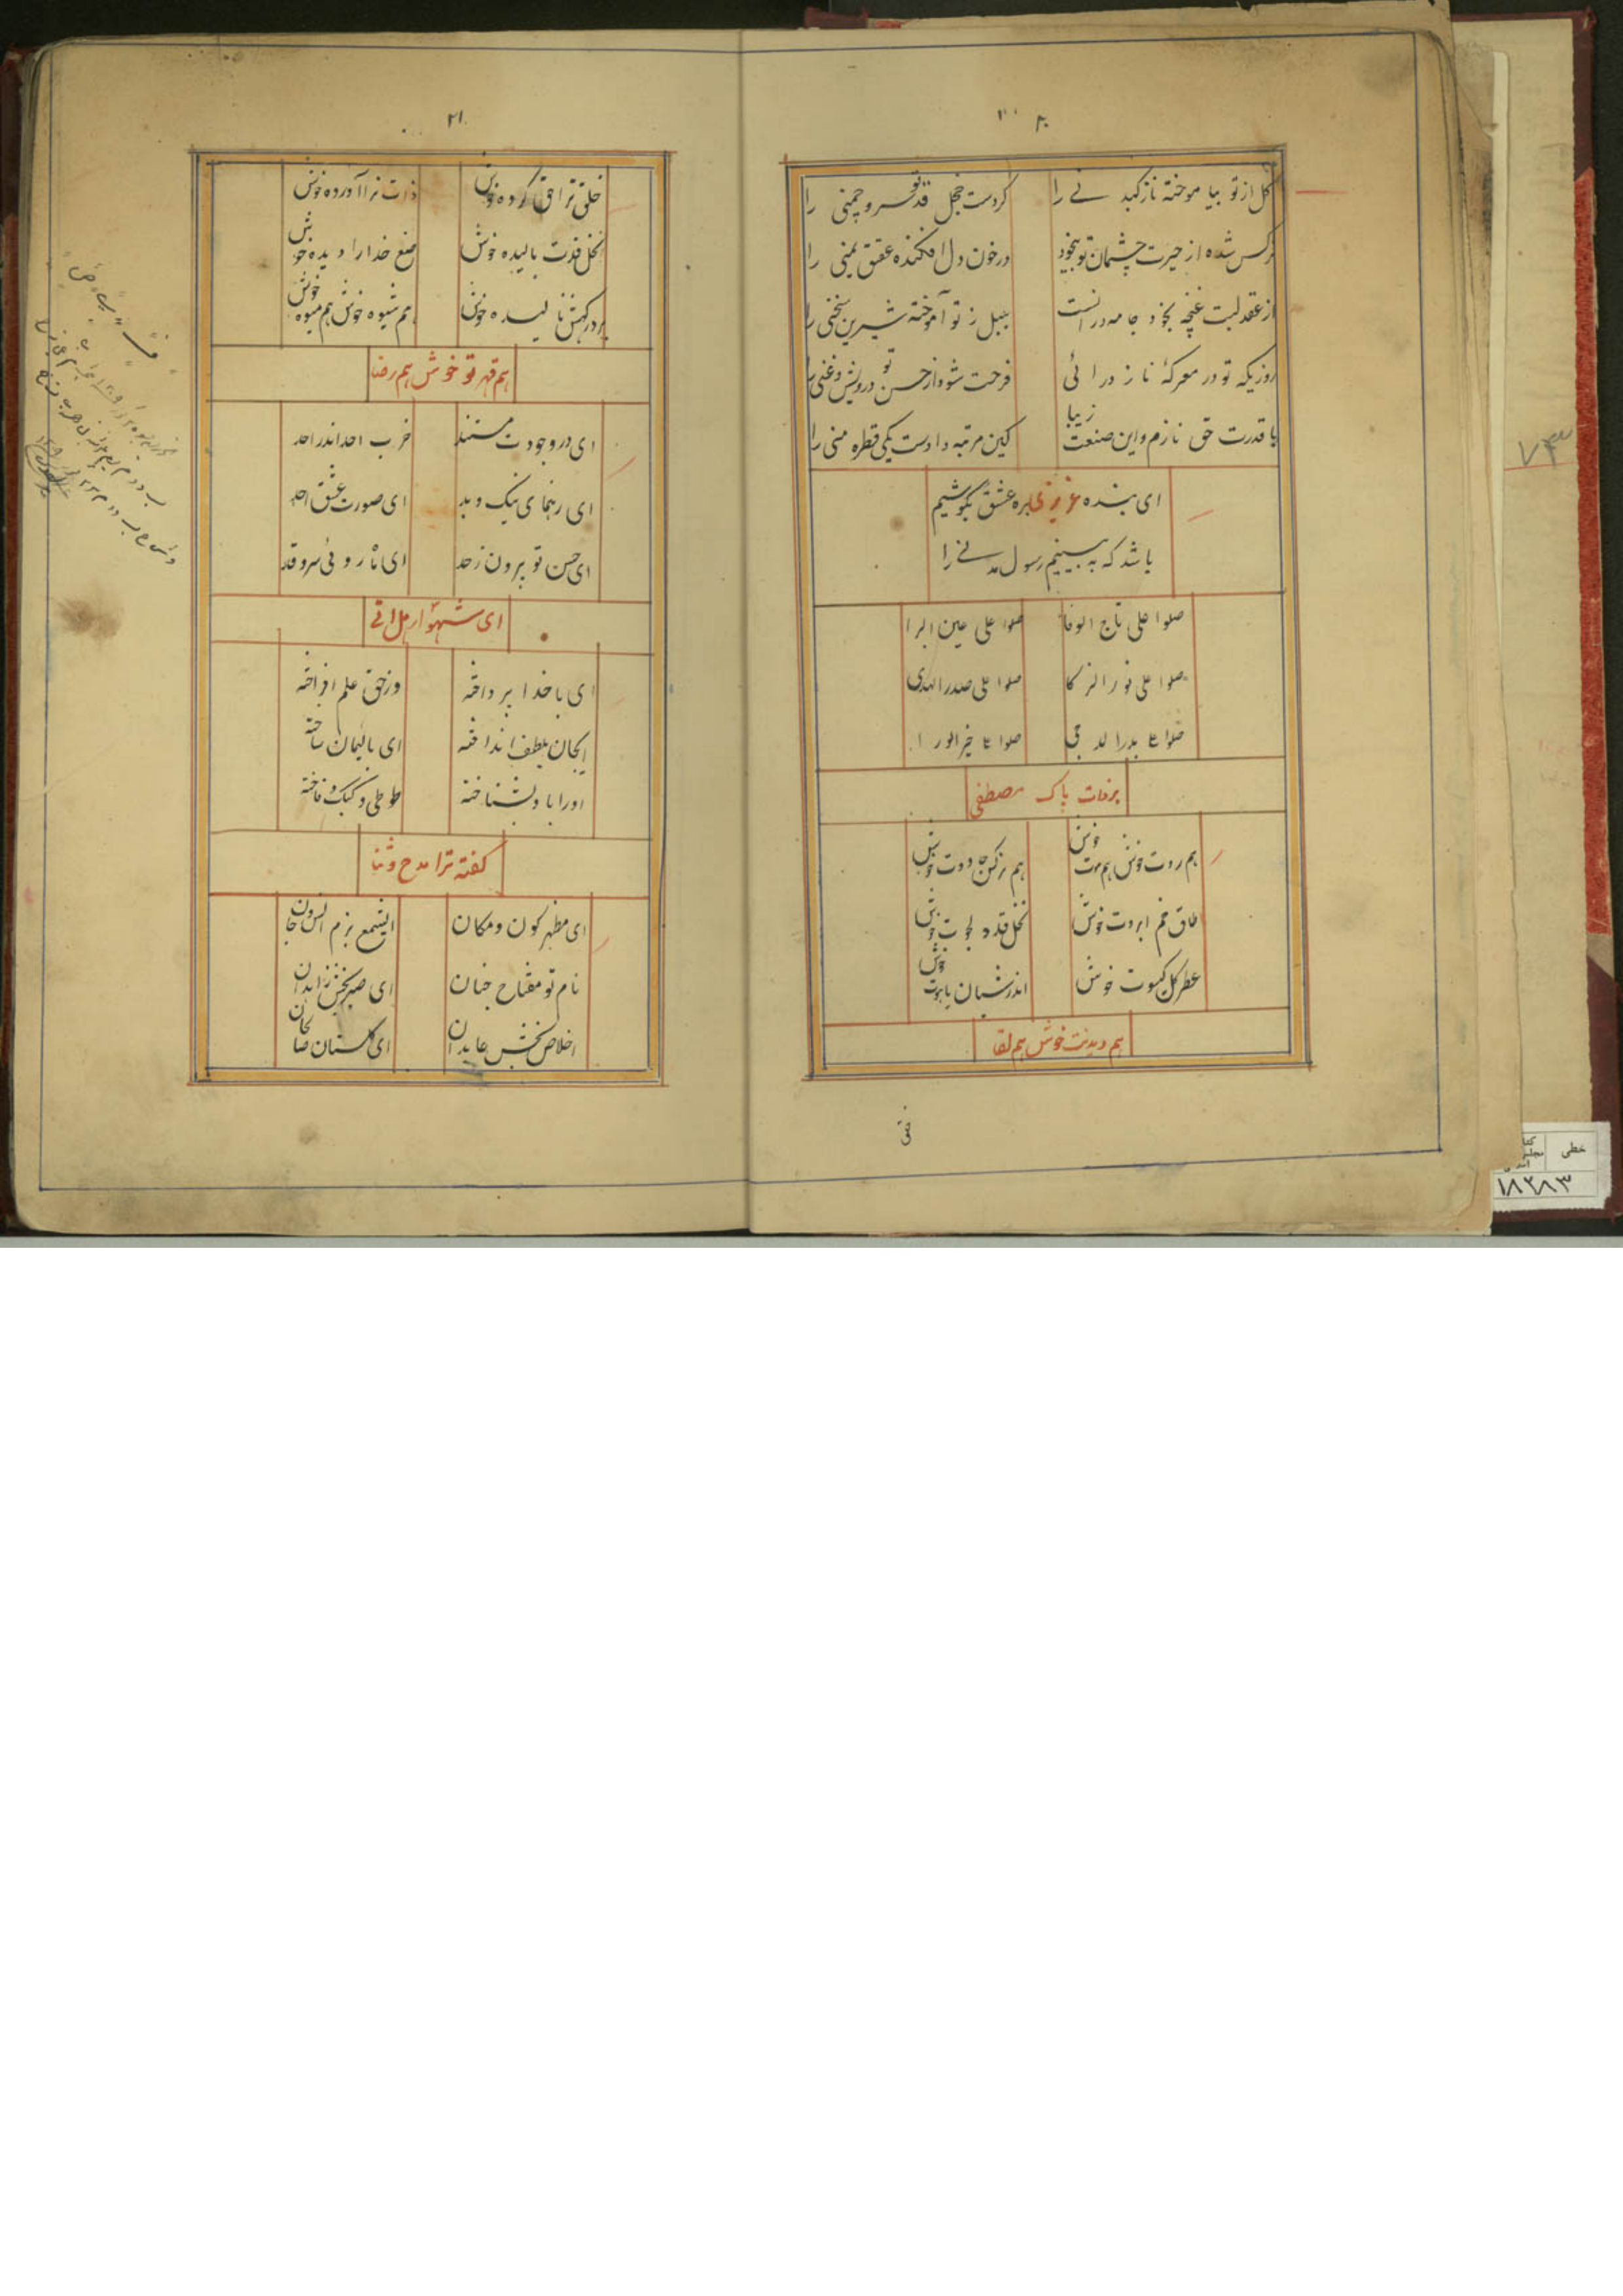 ۲۰
گل از تو بیا موخته نازکبد نے را
کردست خجل قد تو سرو چمنی را
نرکس شده از حیرت چشمان تو بیخود
در خون دل افکنده عقیق یمنی را
از عقد لبت غنچه بخود جامه درانست
بلبل ز تو آموخته شیرین سخنی را
روزیکه تو در معرکهٔ ناز در ائی
فرحت شود از حسن تو درویش و غنی را
با قدرت حق نازم و این صنعت زیبا
کین مرتبه دادست یکی قطره منی را
ای بنده عزیزی بره عشق بکوشیم
باشد که به بینیم رسول مدنے را
صلوا علی تاج الوفا
صلوا علی عین البرا
صلوا علی نور الزکا
صلوا علی صدر الهدی
صلوا علی بدر الدجی
صلوا علی خیر الورا
بر ذات پاک مصطفی
هم روت خوش هم موت خوش
هم نرکس جادوت خوش
طاق خم ابروت خوش
نخل قد دلجوت خوش
عطر گل کیسوت خوش
اندر شبان یاهوت خوش
هم دیدنت خوش هم لقا
۲۱
خلق ترا حق کرده خوش
ذات ترا آورده خوش
نخل قدت بالیده خوش
صنع خدا را دیده خوش
خوش
هم شیوه خوش هم میوه خوش
هم قهر تو خوش هم رضا
ای در وجودت مستند
ضرب احد اندر احد
ای رهنمای نیک و بد
ای صورت عشق احد
ای حسن تو برون ز حد
ای ماه روئی سرو قد
ای شهسوار هل اتی
ای با خدا پرداخته
وز حق علم افراخته
ایجان بلطف انداخته
ای با لئیمان ساخته
اورا باد بشناخته
طوطی و کبک و فاخته
کفته ترا مدح و ثنا
ای مظهر کون و مکان
ایشمع بزم انس و جان
نام تو مفتاح جنان
ای صبر بخش زاهدان
اخلاص بخش عابدان
ای گلستان
۷۳
خطی
۱۸۲۸۳